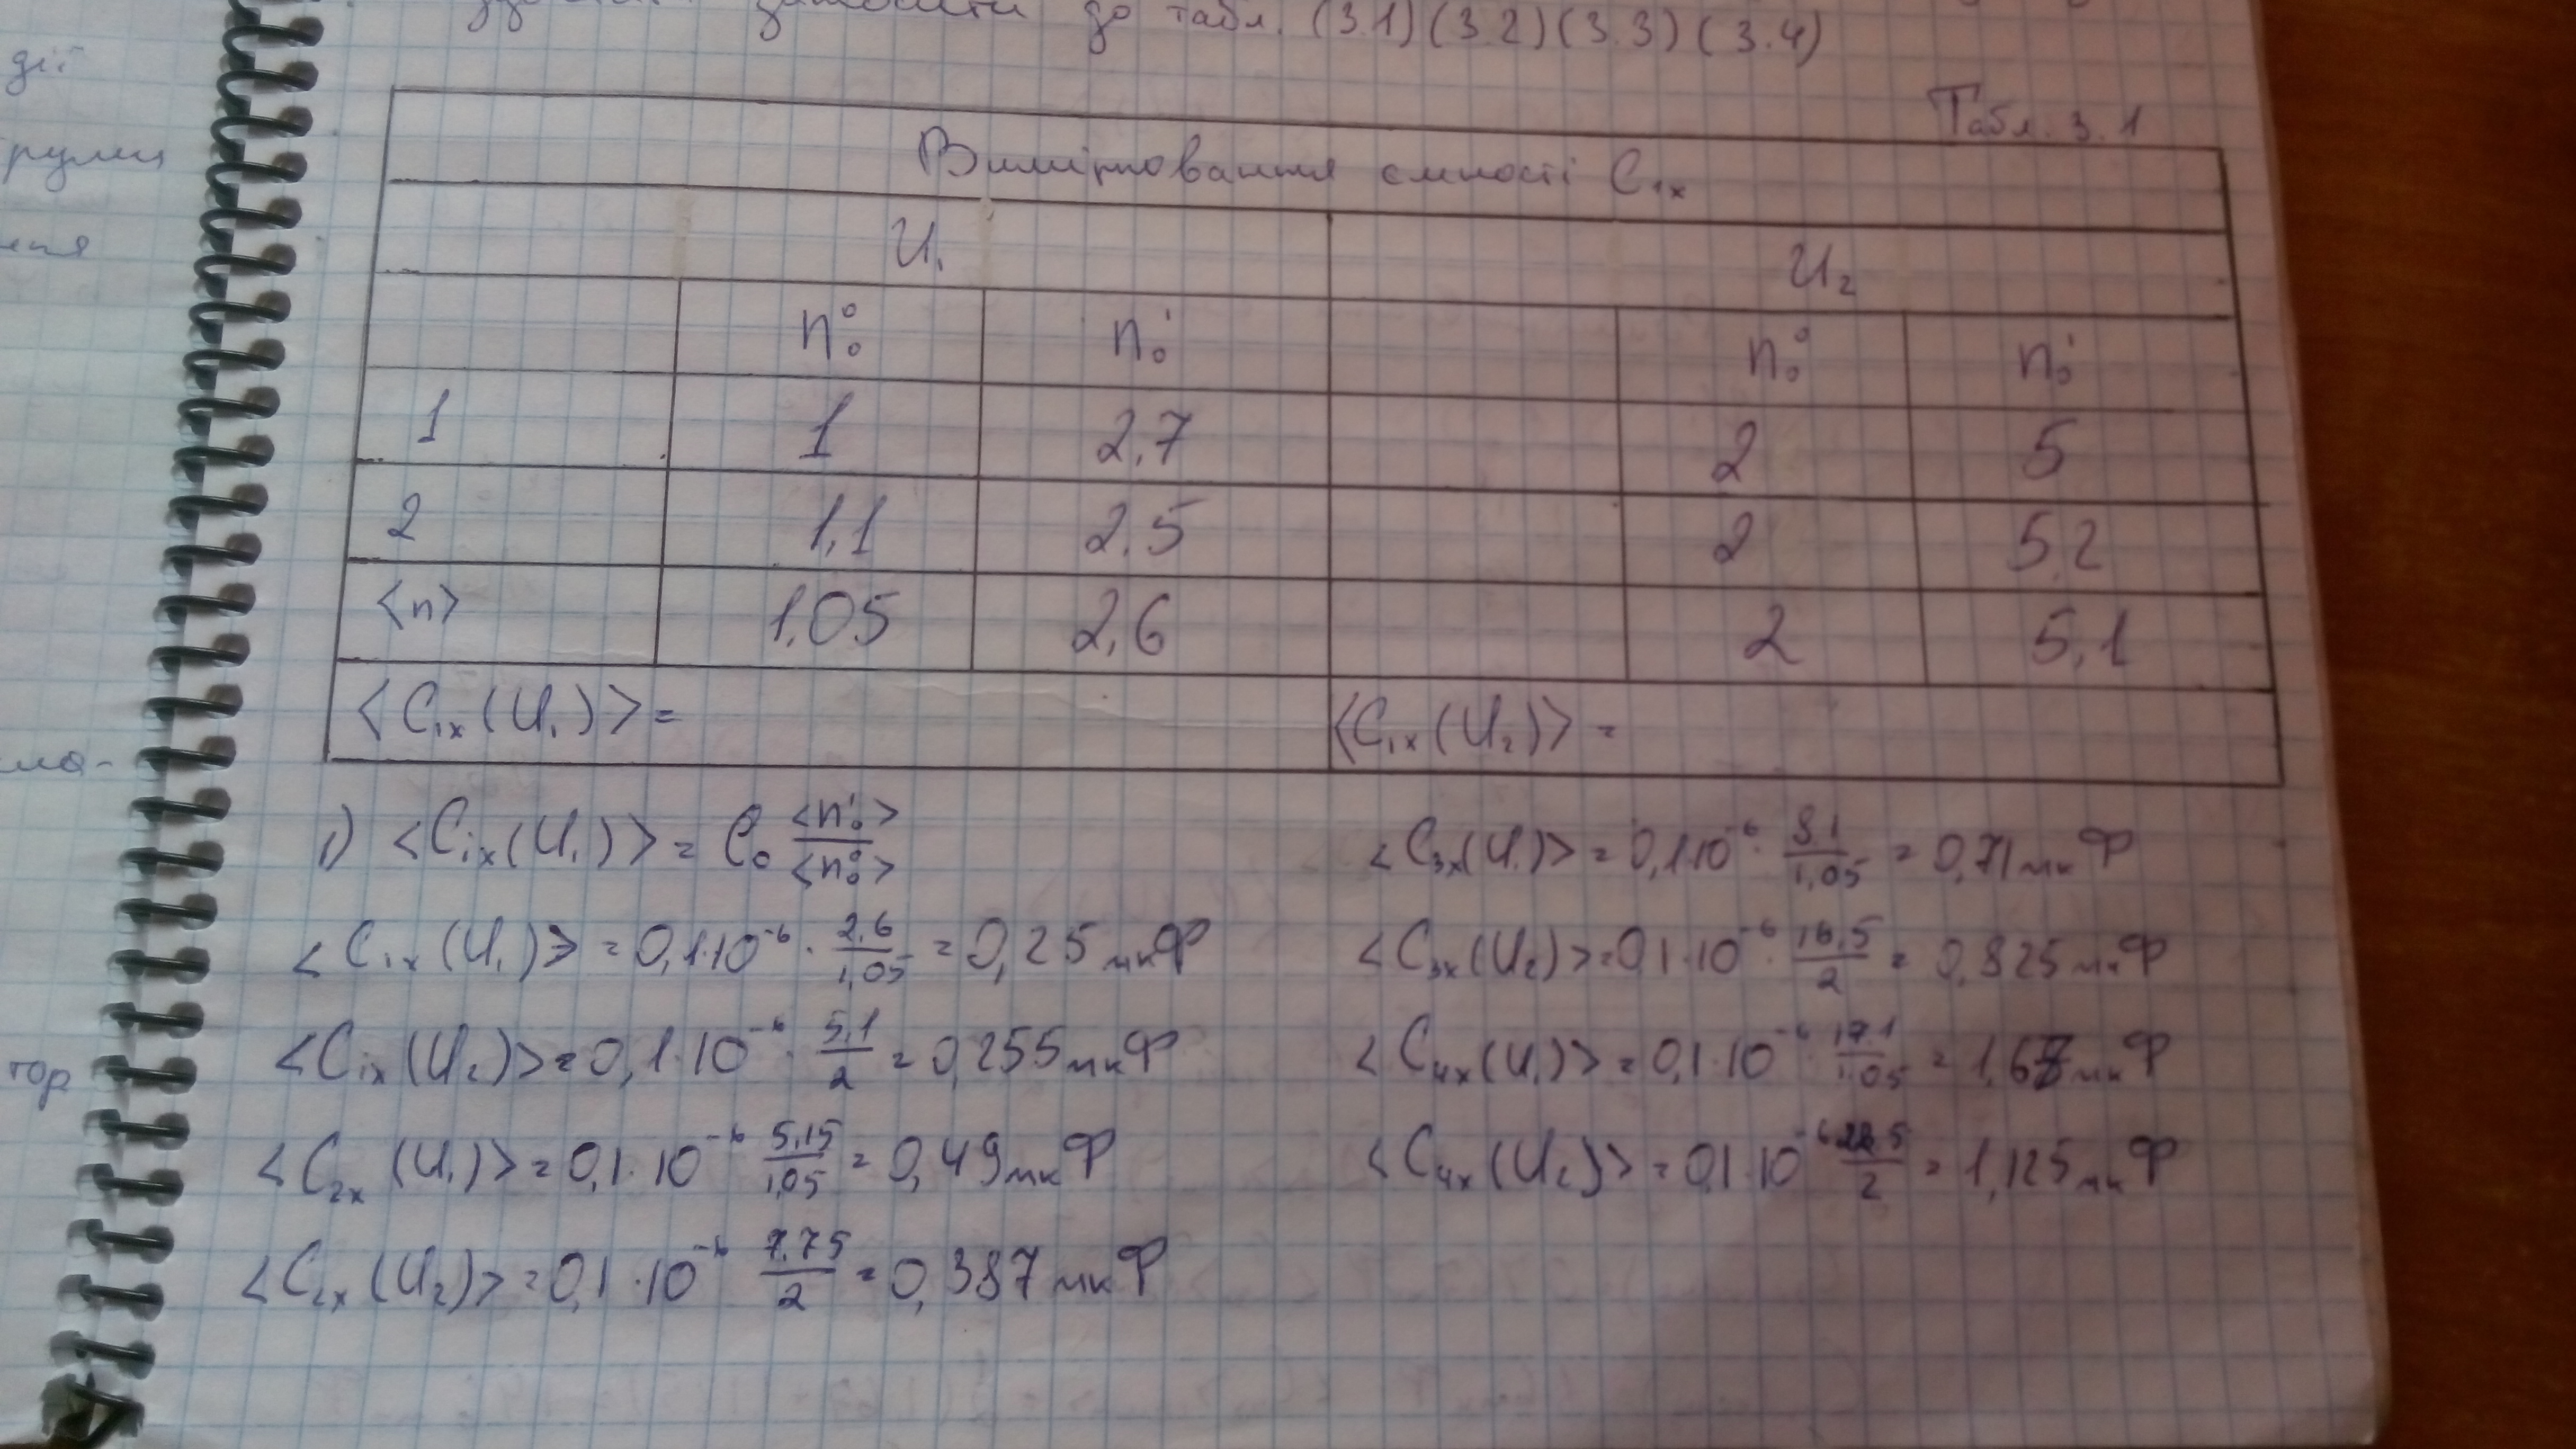 заносити до табл. (3.1) (3.2) (3.3) (3.4)
дії
ма-
тор
Табл. 3.1
Вимірювання ємності C₁ₓ
U₁ U₂
n₀⁰ n₀¹ n₀⁰ n₀¹
1 1 2,7 2 5
2 1,1 2,5 2 5,2
<n> 1,05 2,6 2 5,1
<C₁ₓ(U₁)> = <C₁ₓ(U₂)> =
1) <Cᵢₓ(U₁)> = C₀ <n₀¹>/<n₀⁰>
<C₁ₓ(U₁)> = 0,1·10⁻⁶ · 2,6/1,05 = 0,25 мкФ
<C₁ₓ(U₂)> = 0,1·10⁻⁶ · 5,1/2 = 0,255 мкФ
<C₂ₓ(U₁)> = 0,1·10⁻⁶ 5,15/1,05 = 0,49 мкФ
<C₂ₓ(U₂)> = 0,1·10⁻⁶ 7,75/2 = 0,387 мкФ
<C₃ₓ(U₁)> = 0,1·10⁻⁶ · /1,05 = 0,71 мкФ
<C₃ₓ(U₂)> = 0,1·10⁻⁶ · 16,5/2 = 0,825 мкФ
<C₄ₓ(U₁)> = 0,1·10⁻⁶ · 17,1/1,05 = мкФ
<C₄ₓ(U₂)> = 0,1·10⁻⁶ 22,5/2 = 1,125 мкФ